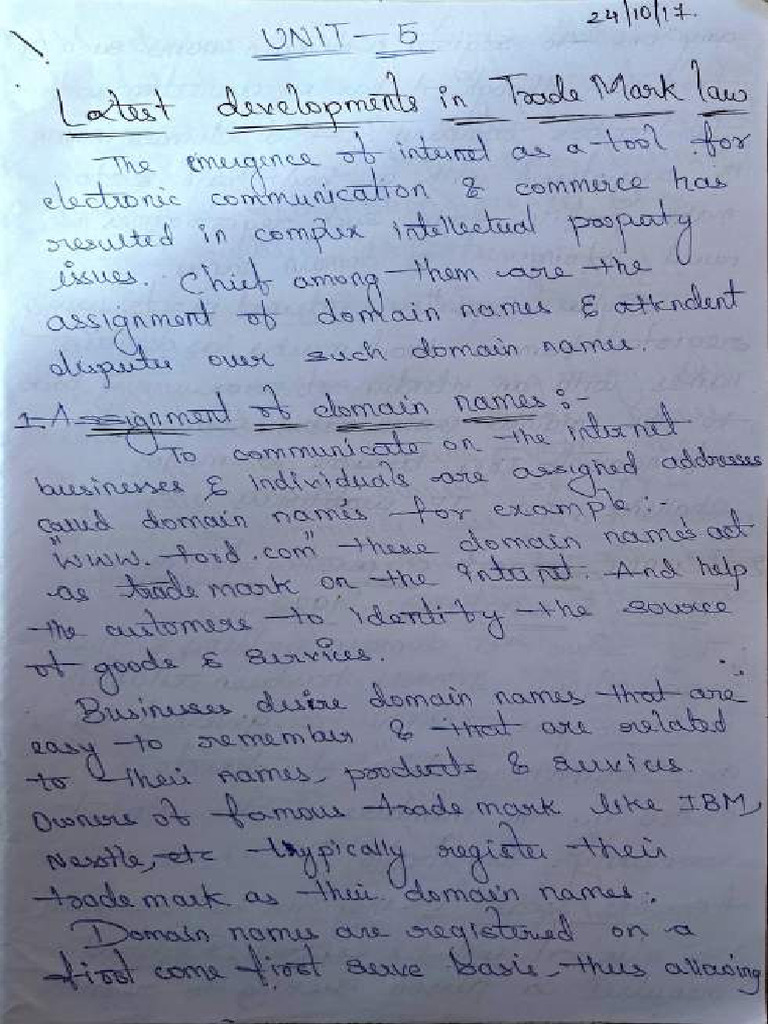 24/10/17.
UNIT - 5
Latest developments in Trade Mark law
The emergence of internet as a tool for
electronic communication & commerce has
resulted in complex intellectual property
issues. Chief among them are the
assignment of domain names & attendent
dispute over such domain names.
1. Assignment of domain names :-
To communicate on the internet
businesses & individuals are assigned addresses
caued domain names for example :-
"www.ford.com" these domain names act
as trade mark on the intranet. And help
the customers to identity the source
of goods & services.
Businesses desire domain names that are
easy to remember & that are related
to their names, products & services.
Owners of famous trade mark like IBM,
Nestle, etc typically register their
trade mark as their domain names.
Domain names are registered on a
first come first serve basis, thus allowing